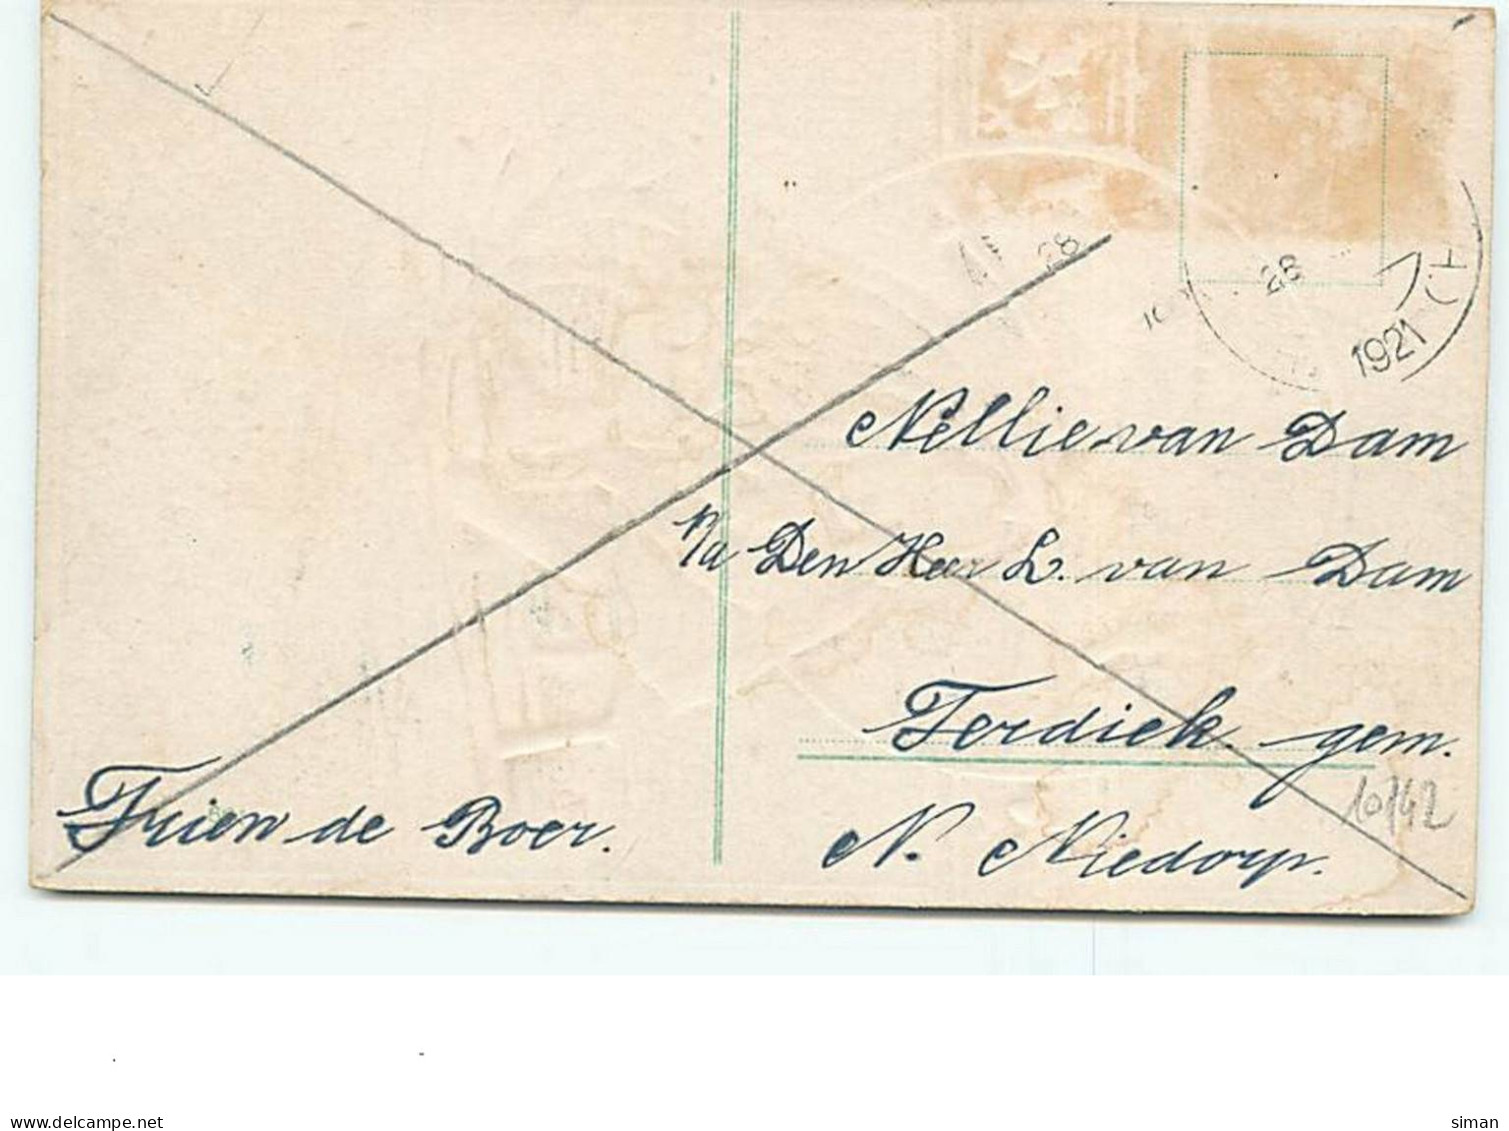 28
28
1921
Nellie van Dam
p/a Den Heer L. van Dam
Terdiek gem.
N. Niedorp.
Trien de Boer.
10742
delcampe.net
siman